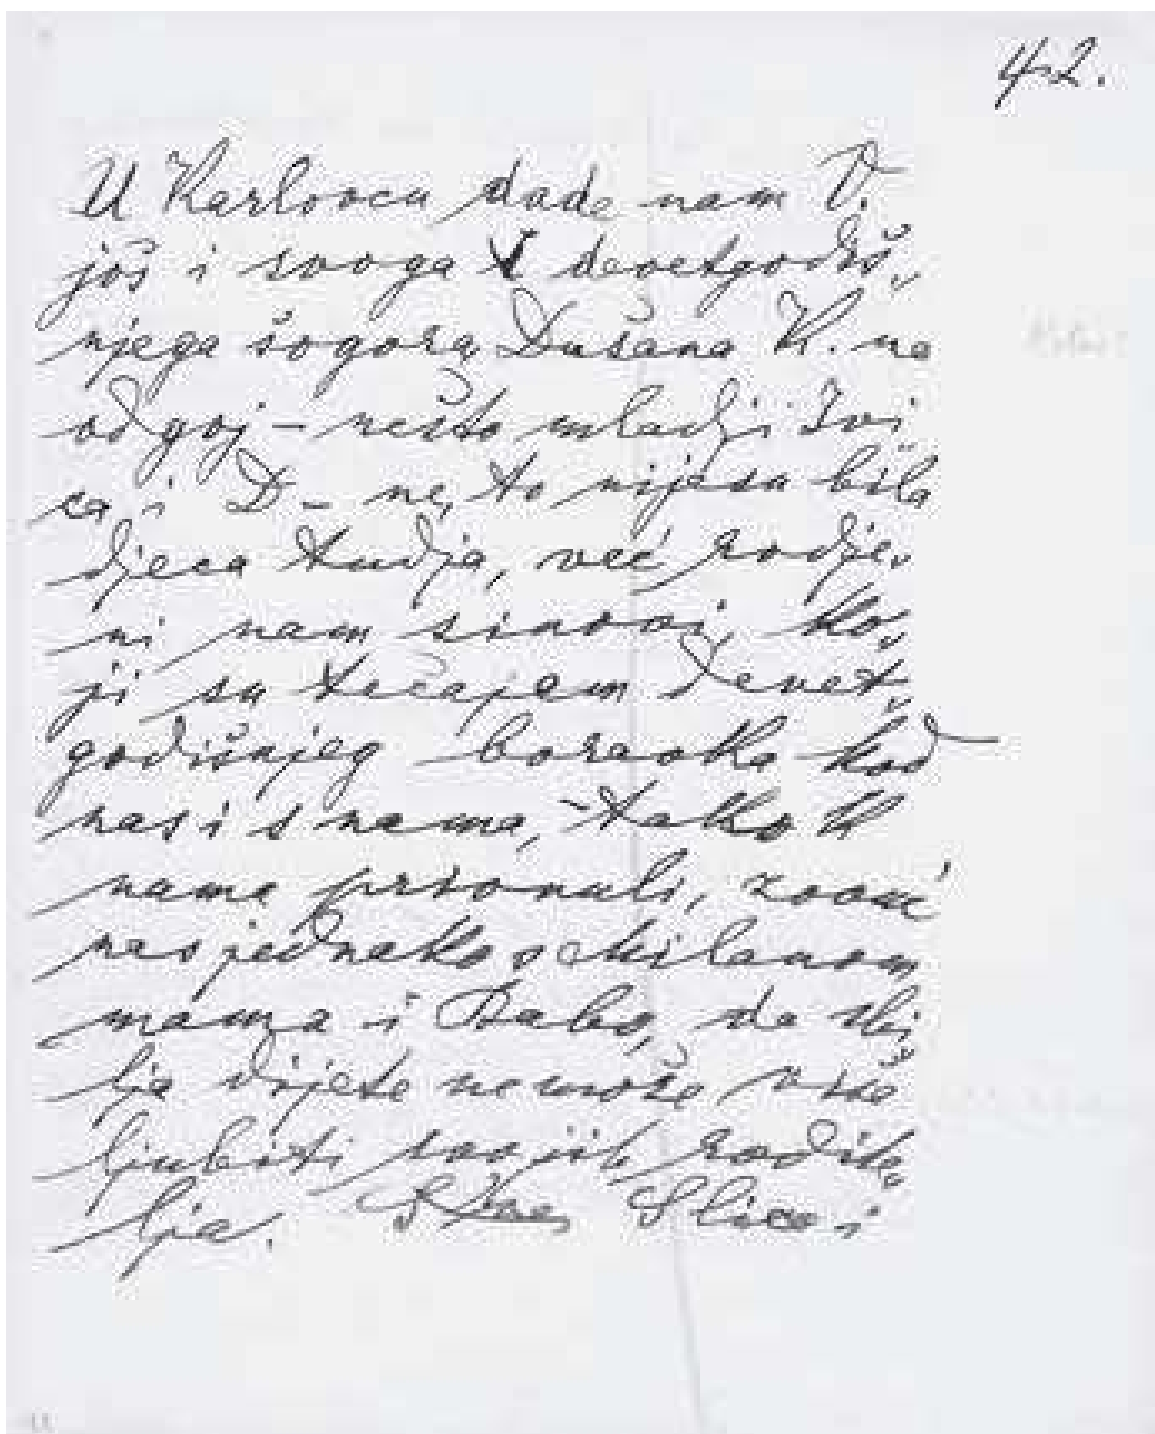 42.
U Karlovcu dade nam V.
još i svoga devetgodiš-
njega šogora Dušana K. na
odgoj – nešto mladji Ivi
ca i D – ne, to nijesu bila
djeca tudja, već rodje-
ni nam sinovi, ko-
ji su tečajem devet-
godišnjeg boravka kod
nas i s nama, tako k
nama prionuli, zovuć
nas jednako s Milanom
mama i Babo, da zbi
lja dijete nemože više
ljubiti svojih rodite-
lja. Slica i